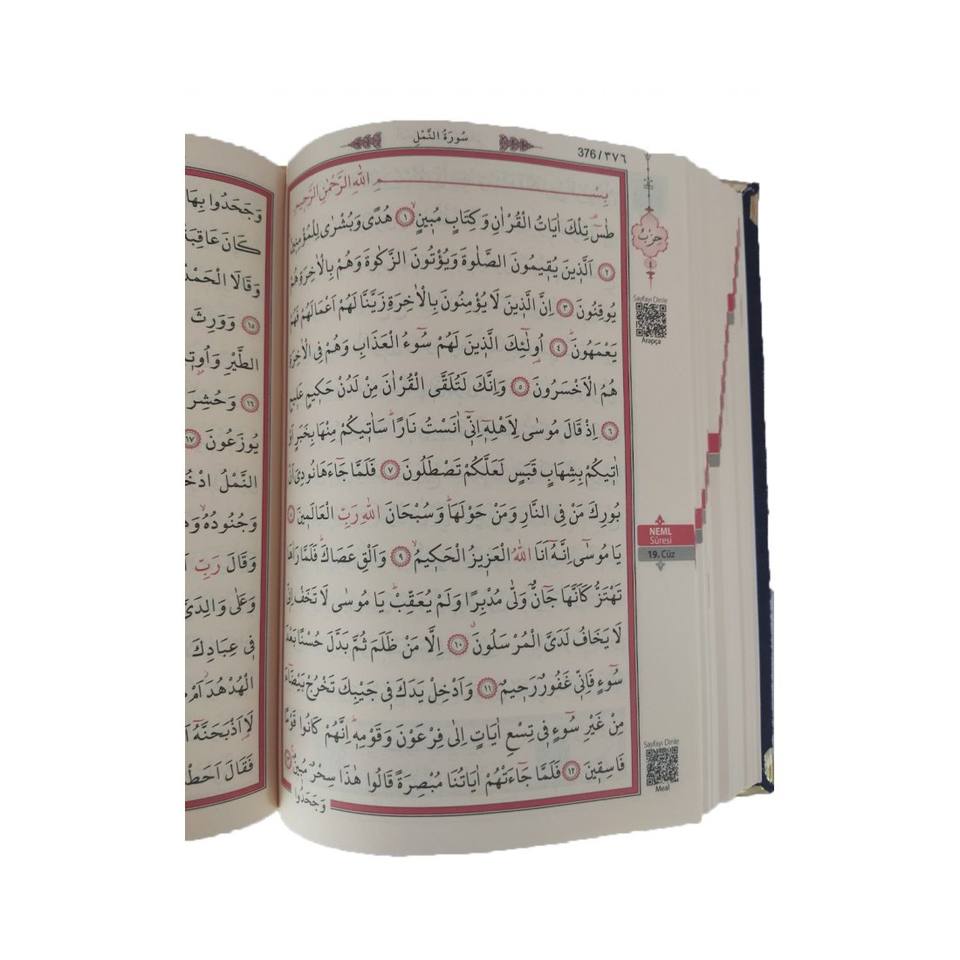 سُورَةُ النَّمْلِ
376/٣٧٦
بِسْــــمِ اللهِ الرَّحْمٰنِ الرَّحٖيمِ
طٰسٓ تِلْكَ اٰيَاتُ الْقُرْاٰنِ وَكِتَابٍ مُبٖينٍۙ ﴿١﴾ هُدًى وَبُشْرٰى لِلْمُؤْمِنٖينَۙ
﴿٢﴾ اَلَّذٖينَ يُقٖيمُونَ الصَّلٰوةَ وَيُؤْتُونَ الزَّكٰوةَ وَهُمْ بِالْاٰخِرَةِ هُمْ
يُوقِنُونَ ﴿٣﴾ اِنَّ الَّذٖينَ لَا يُؤْمِنُونَ بِالْاٰخِرَةِ زَيَّنَّا لَهُمْ اَعْمَالَهُمْ فَهُمْ
يَعْمَهُونَۜ ﴿٤﴾ اُو۬لٰٓئِكَ الَّذٖينَ لَهُمْ سُٓوءُ الْعَذَابِ وَهُمْ فِي الْاٰخِرَةِ
هُمُ الْاَخْسَرُونَ ﴿٥﴾ وَاِنَّكَ لَتُلَقَّى الْقُرْاٰنَ مِنْ لَدُنْ حَكٖيمٍ عَلٖيمٍ
﴿٦﴾ اِذْ قَالَ مُوسٰى لِاَهْلِهٖٓ اِنّٖٓي اٰنَسْتُ نَارًاۜ سَاٰتٖيكُمْ مِنْهَا بِخَبَرٍ اَوْ
اٰتٖيكُمْ بِشِهَابٍ قَبَسٍ لَعَلَّكُمْ تَصْطَلُونَ ﴿٧﴾ فَلَمَّا جَٓاءَهَا نُودِيَ اَنْ
بُورِكَ مَنْ فِي النَّارِ وَمَنْ حَوْلَهَاۜ وَسُبْحَانَ اللهِ رَبِّ الْعَالَمٖينَ ﴿٨﴾
يَا مُوسٰٓى اِنَّهُٓ اَنَا اللهُ الْعَزٖيزُ الْحَكٖيمُۙ ﴿٩﴾ وَاَلْقِ عَصَاكَۜ فَلَمَّا رَاٰهَا
تَهْتَزُّ كَاَنَّهَا جَٓانٌّ وَلّٰى مُدْبِرًا وَلَمْ يُعَقِّبْۜ يَا مُوسٰى لَا تَخَفْ اِنّٖي
لَا يَخَافُ لَدَيَّ الْمُرْسَلُونَۗ ﴿١٠﴾ اِلَّا مَنْ ظَلَمَ ثُمَّ بَدَّلَ حُسْنًا بَعْدَ
سُٓوءٍ فَاِنّٖي غَفُورٌ رَحٖيمٌ ﴿١١﴾ وَاَدْخِلْ يَدَكَ فٖي جَيْبِكَ تَخْرُجْ بَيْضَٓاءَ
مِنْ غَيْرِ سُٓوءٍ فٖي تِسْعِ اٰيَاتٍ اِلٰى فِرْعَوْنَ وَقَوْمِهٖۜ اِنَّهُمْ كَانُوا قَوْمًا
فَاسِقٖينَ ﴿١٢﴾ فَلَمَّا جَٓاءَتْهُمْ اٰيَاتُنَا مُبْصِرَةً قَالُوا هٰذَا سِحْرٌ مُبٖينٌۚ ﴿١٣﴾
وَجَحَدُوا
حِزْبُ
٤
Sayfayı Dinle
Arapça
NEML
Sûresi
19. Cüz
Sayfayı Dinle
Meal
وَجَحَدُوا بِهَا
كَانَ عَاقِبَةُ
وَقَالَا الْحَمْدُ
﴿١٥﴾ وَوَرِثَ
الطَّيْرِ وَاُوتٖ
﴿١٦﴾ وَحُشِرَ
يُوزَعُونَ ﴿١٧﴾
النَّمْلُ ادْخُ
وَجُنُودُهُۙ وَهُ
وَقَالَ رَبِّ
وَعَلٰى وَالِدَيَّ
فٖي عِبَادِكَ
الْهُدْهُدَۘ اَمْ
لَاَذْبَحَنَّهُٓ
فَقَالَ اَحَطْ